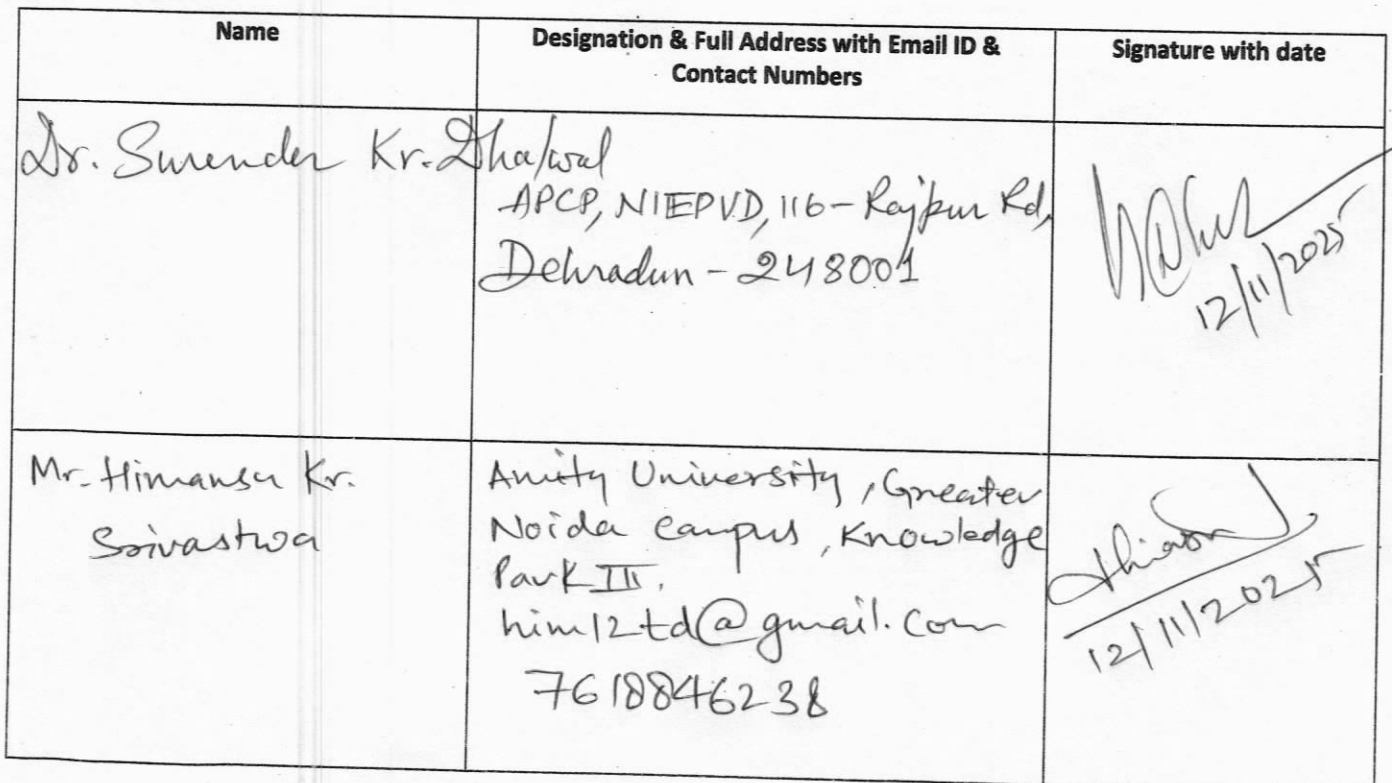 Name
Designation & Full Address with Email ID &
Contact Numbers
Signature with date
Dr. Surender Kr. Dhalwal
APCP, NIEPVD, 116- Rajpur Rd,
Dehradun - 248001
12/11/2025
Mr. Himansu Kr.
Srivastwa
Amity University, Greater
Noida Campus, Knowledge
Park III.
him12td@gmail.com
7618846238
12/11/2025